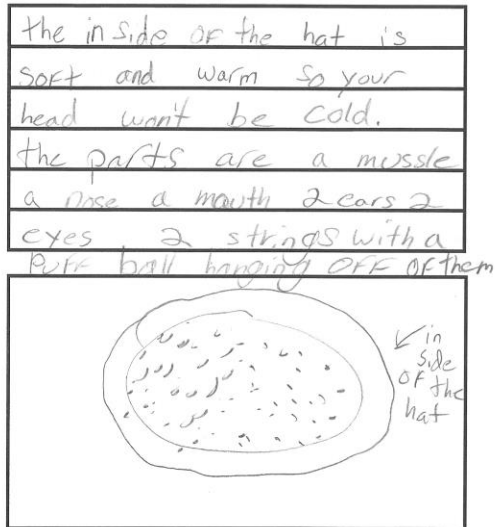 the inside of the hat is
soft and warm so your
head won't be cold.
the parts are a mussle
a nose a mouth 2 ears 2
eyes 2 strings with a
puff ball hanging off of them
in
side
of the
hat